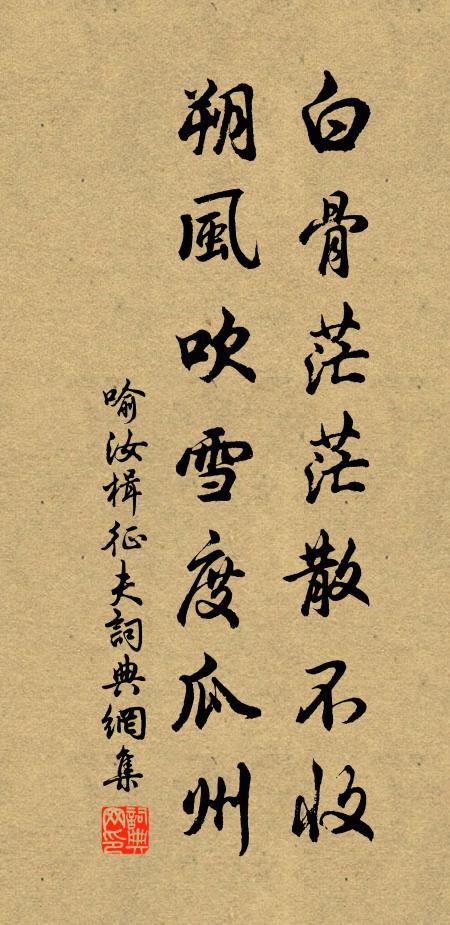 白骨茫茫散不收
朔風吹雪度瓜州
喻汝楫征夫詞典網集
詞典网印